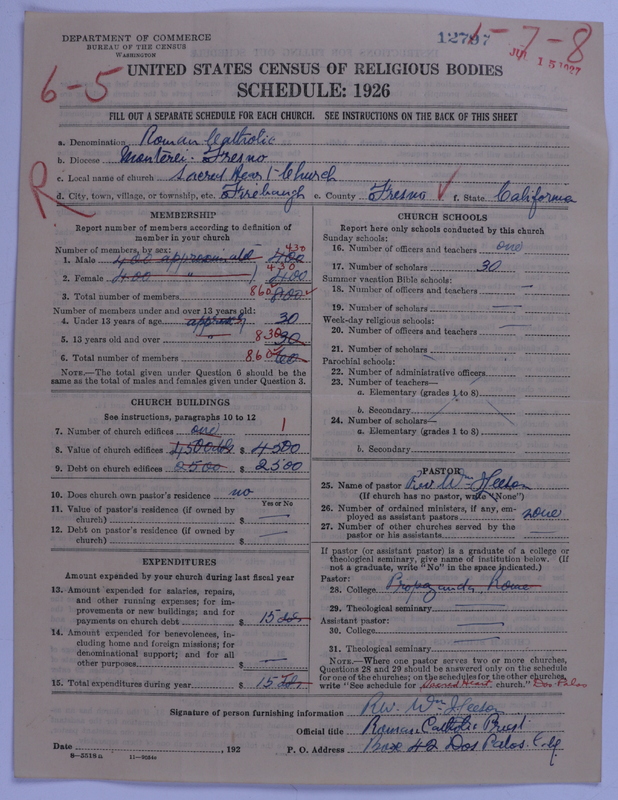 DEPARTMENT OF COMMERCE
BUREAU OF THE CENSUS
WASHINGTON
12797
-7-8
JUL 15 1927
6-5
UNITED STATES CENSUS OF RELIGIOUS BODIES
SCHEDULE: 1926
FILL OUT A SEPARATE SCHEDULE FOR EACH CHURCH. SEE INSTRUCTIONS ON THE BACK OF THIS SHEET
a. Denomination Roman Catholic
b. Diocese Monterei-Fresno
c. Local name of church Sacred Heart Church
R
d. City, town, village, or township, etc. Firebaugh e. County Fresno f. State California
MEMBERSHIP
Report number of members according to definition of
member in your church
Number of members, by sex:
1. Male 400 approximate 400 430
2. Female 400 " 400 430
3. Total number of members 860 800
Number of members under and over 13 years old:
4. Under 13 years of age 30
5. 13 years old and over " 830 30
6. Total number of members 860 60
NOTE.—The total given under Question 6 should be the
same as the total of males and females given under Question 3.
CHURCH BUILDINGS
See instructions, paragraphs 10 to 12
7. Number of church edifices one 1
8. Value of church edifices 4500 $ 4500
9. Debt on church edifices 2500 $ 2500
10. Does church own pastor's residence no
Yes or No
11. Value of pastor's residence (if owned by
church) $ —
12. Debt on pastor's residence (if owned by
church) $ —
EXPENDITURES
Amount expended by your church during last fiscal year
13. Amount expended for salaries, repairs,
and other running expenses; for im-
provements or new buildings; and for
payments on church debt $ 15
14. Amount expended for benevolences, in-
cluding home and foreign missions; for
denominational support; and for all
other purposes $ —
15. Total expenditures during year $ 15
CHURCH SCHOOLS
Report here only schools conducted by this church
Sunday schools:
16. Number of officers and teachers one
17. Number of scholars 30
Summer vacation Bible schools:
18. Number of officers and teachers —
19. Number of scholars —
Week-day religious schools:
20. Number of officers and teachers —
21. Number of scholars —
Parochial schools:
22. Number of administrative officers
23. Number of teachers—
a. Elementary (grades 1 to 8)
b. Secondary
24. Number of scholars—
a. Elementary (grades 1 to 8)
b. Secondary
PASTOR
25. Name of pastor Rev Wm J
(If church has no pastor, write "None")
26. Number of ordained ministers, if any, em-
ployed as assistant pastors none
27. Number of other churches served by the
pastor or his assistants —
If pastor (or assistant pastor) is a graduate of a college or
theological seminary, give name of institution below. (If
not a graduate, write "No" in the space indicated.)
Pastor:
28. College Propaganda Rome
29. Theological seminary
Assistant pastor:
30. College
31. Theological seminary
NOTE.—Where one pastor serves two or more churches,
Questions 28 and 29 should be answered only on the schedule
for one of the churches; on the schedules for the other churches,
write "See schedule for Sacred Heart church." Dos Palos
Signature of person furnishing information Rev. Wm J
Official title Roman Catholic Priest
Date , 192 P. O. Address Box 42 Dos Palos. Cal
8—5518a 11—9034a